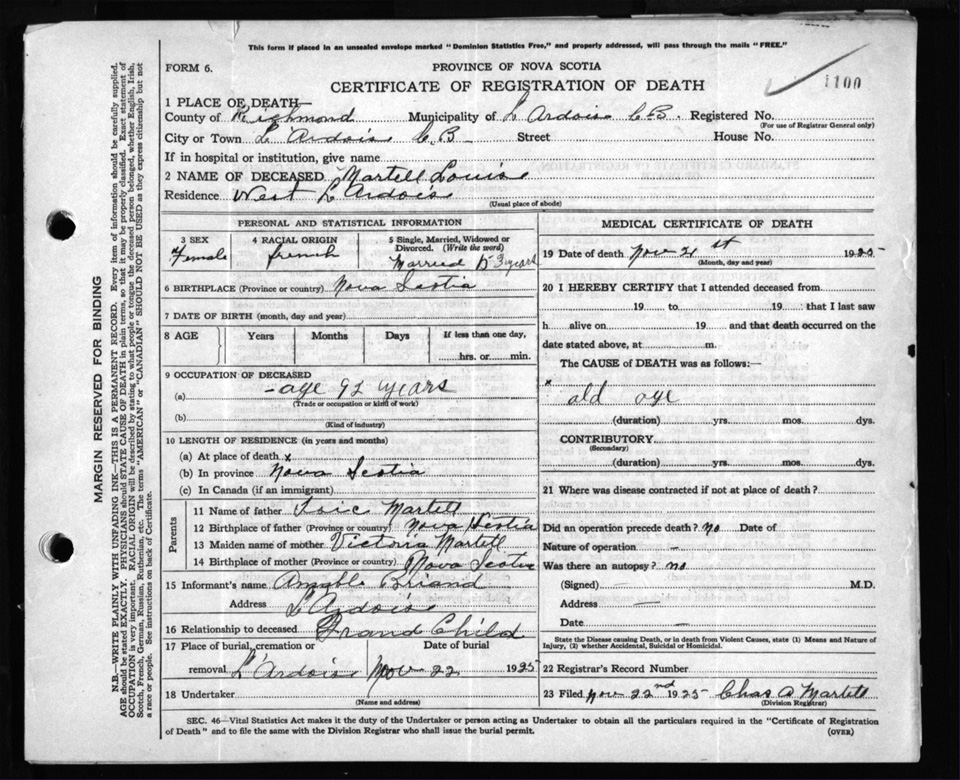 This form if placed in an unsealed envelope marked "Dominion Statistics Free," and properly addressed, will pass through the mails "FREE."
FORM 6.
PROVINCE OF NOVA SCOTIA
CERTIFICATE OF REGISTRATION OF DEATH
1100
1 PLACE OF DEATH—
County of Richmond Municipality of L'Ardoise C.B. Registered No.
(For use of Registrar General only)
City or Town L'Ardois C.B Street House No.
If in hospital or institution, give name
2 NAME OF DECEASED Martell Louise
Residence West L'Ardoise
(Usual place of abode)
PERSONAL AND STATISTICAL INFORMATION
3 SEX
Female
4 RACIAL ORIGIN
french
5 Single, Married, Widowed or Divorced. (Write the word)
Married 53 years
6 BIRTHPLACE (Province or country) Nova Scotia
7 DATE OF BIRTH (month, day and year)
8 AGE Years Months Days If less than one day,
hrs. or min.
9 OCCUPATION OF DECEASED
(a) - age 92 years
(Trade or occupation or kind of work)
(b)
(Kind of industry)
10 LENGTH OF RESIDENCE (in years and months)
(a) At place of death x
(b) In province Nova Scotia
(c) In Canada (if an immigrant)
Parents
11 Name of father Martell
12 Birthplace of father (Province or country) Nova Scotia
13 Maiden name of mother Victoria Martell
14 Birthplace of mother (Province or country) Nova Scotia
15 Informant's name Amable Briand
Address L'Ardoise
16 Relationship to deceased Grand Child
17 Place of burial, cremation or removal L'Ardoise
Date of burial
Nov 22 1925
18 Undertaker
(Name and address)
MEDICAL CERTIFICATE OF DEATH
19 Date of death Nov 21st 1925
(Month, day and year)
20 I HEREBY CERTIFY that I attended deceased from
19 to 19 that I last saw
h alive on 19 and that death occurred on
date stated above, at m.
The CAUSE of DEATH was as follows:—
x
old age
(duration) yrs. mos. dys.
CONTRIBUTORY
(Secondary)
(duration) yrs. mos. dys.
21 Where was disease contracted if not at place of death?
Did an operation precede death? no Date of
Nature of operation —
Was there an autopsy? no
(Signed) — M.D.
Address —
Date —
State the Disease causing Death, or in death from Violent Causes, state (1) Means and Nature of
Injury, (2) whether Accidental, Suicidal or Homicidal.
22 Registrar's Record Number
23 Filed Nov 22nd 1925 Chas A Martell
(Division Registrar)
SEC. 46—Vital Statistics Act makes it the duty of the Undertaker or person acting as Undertaker to obtain all the particulars required in the "Certificate of Registration
of Death" and to file the same with the Division Registrar who shall issue the burial permit.
(OVER)
MARGIN RESERVED FOR BINDING
N.B.—WRITE PLAINLY WITH UNFADING INK—THIS IS A PERMANENT RECORD. Every item of information should be carefully supplied.
AGE should be stated EXACTLY. PHYSICIANS should STATE CAUSE OF DEATH in plain terms, so that it may be properly classified. Exact statement of
OCCUPATION is very important. RACIAL ORIGIN will be described by stating to what people or tongue the deceased person belonged, whether English, Irish,
Scotch, French, German, Russian, Ruthenian, etc. The terms "AMERICAN" or "CANADIAN" SHOULD NOT BE USED as they express citizenship but not
a race or people. See instructions on back of Certificate.